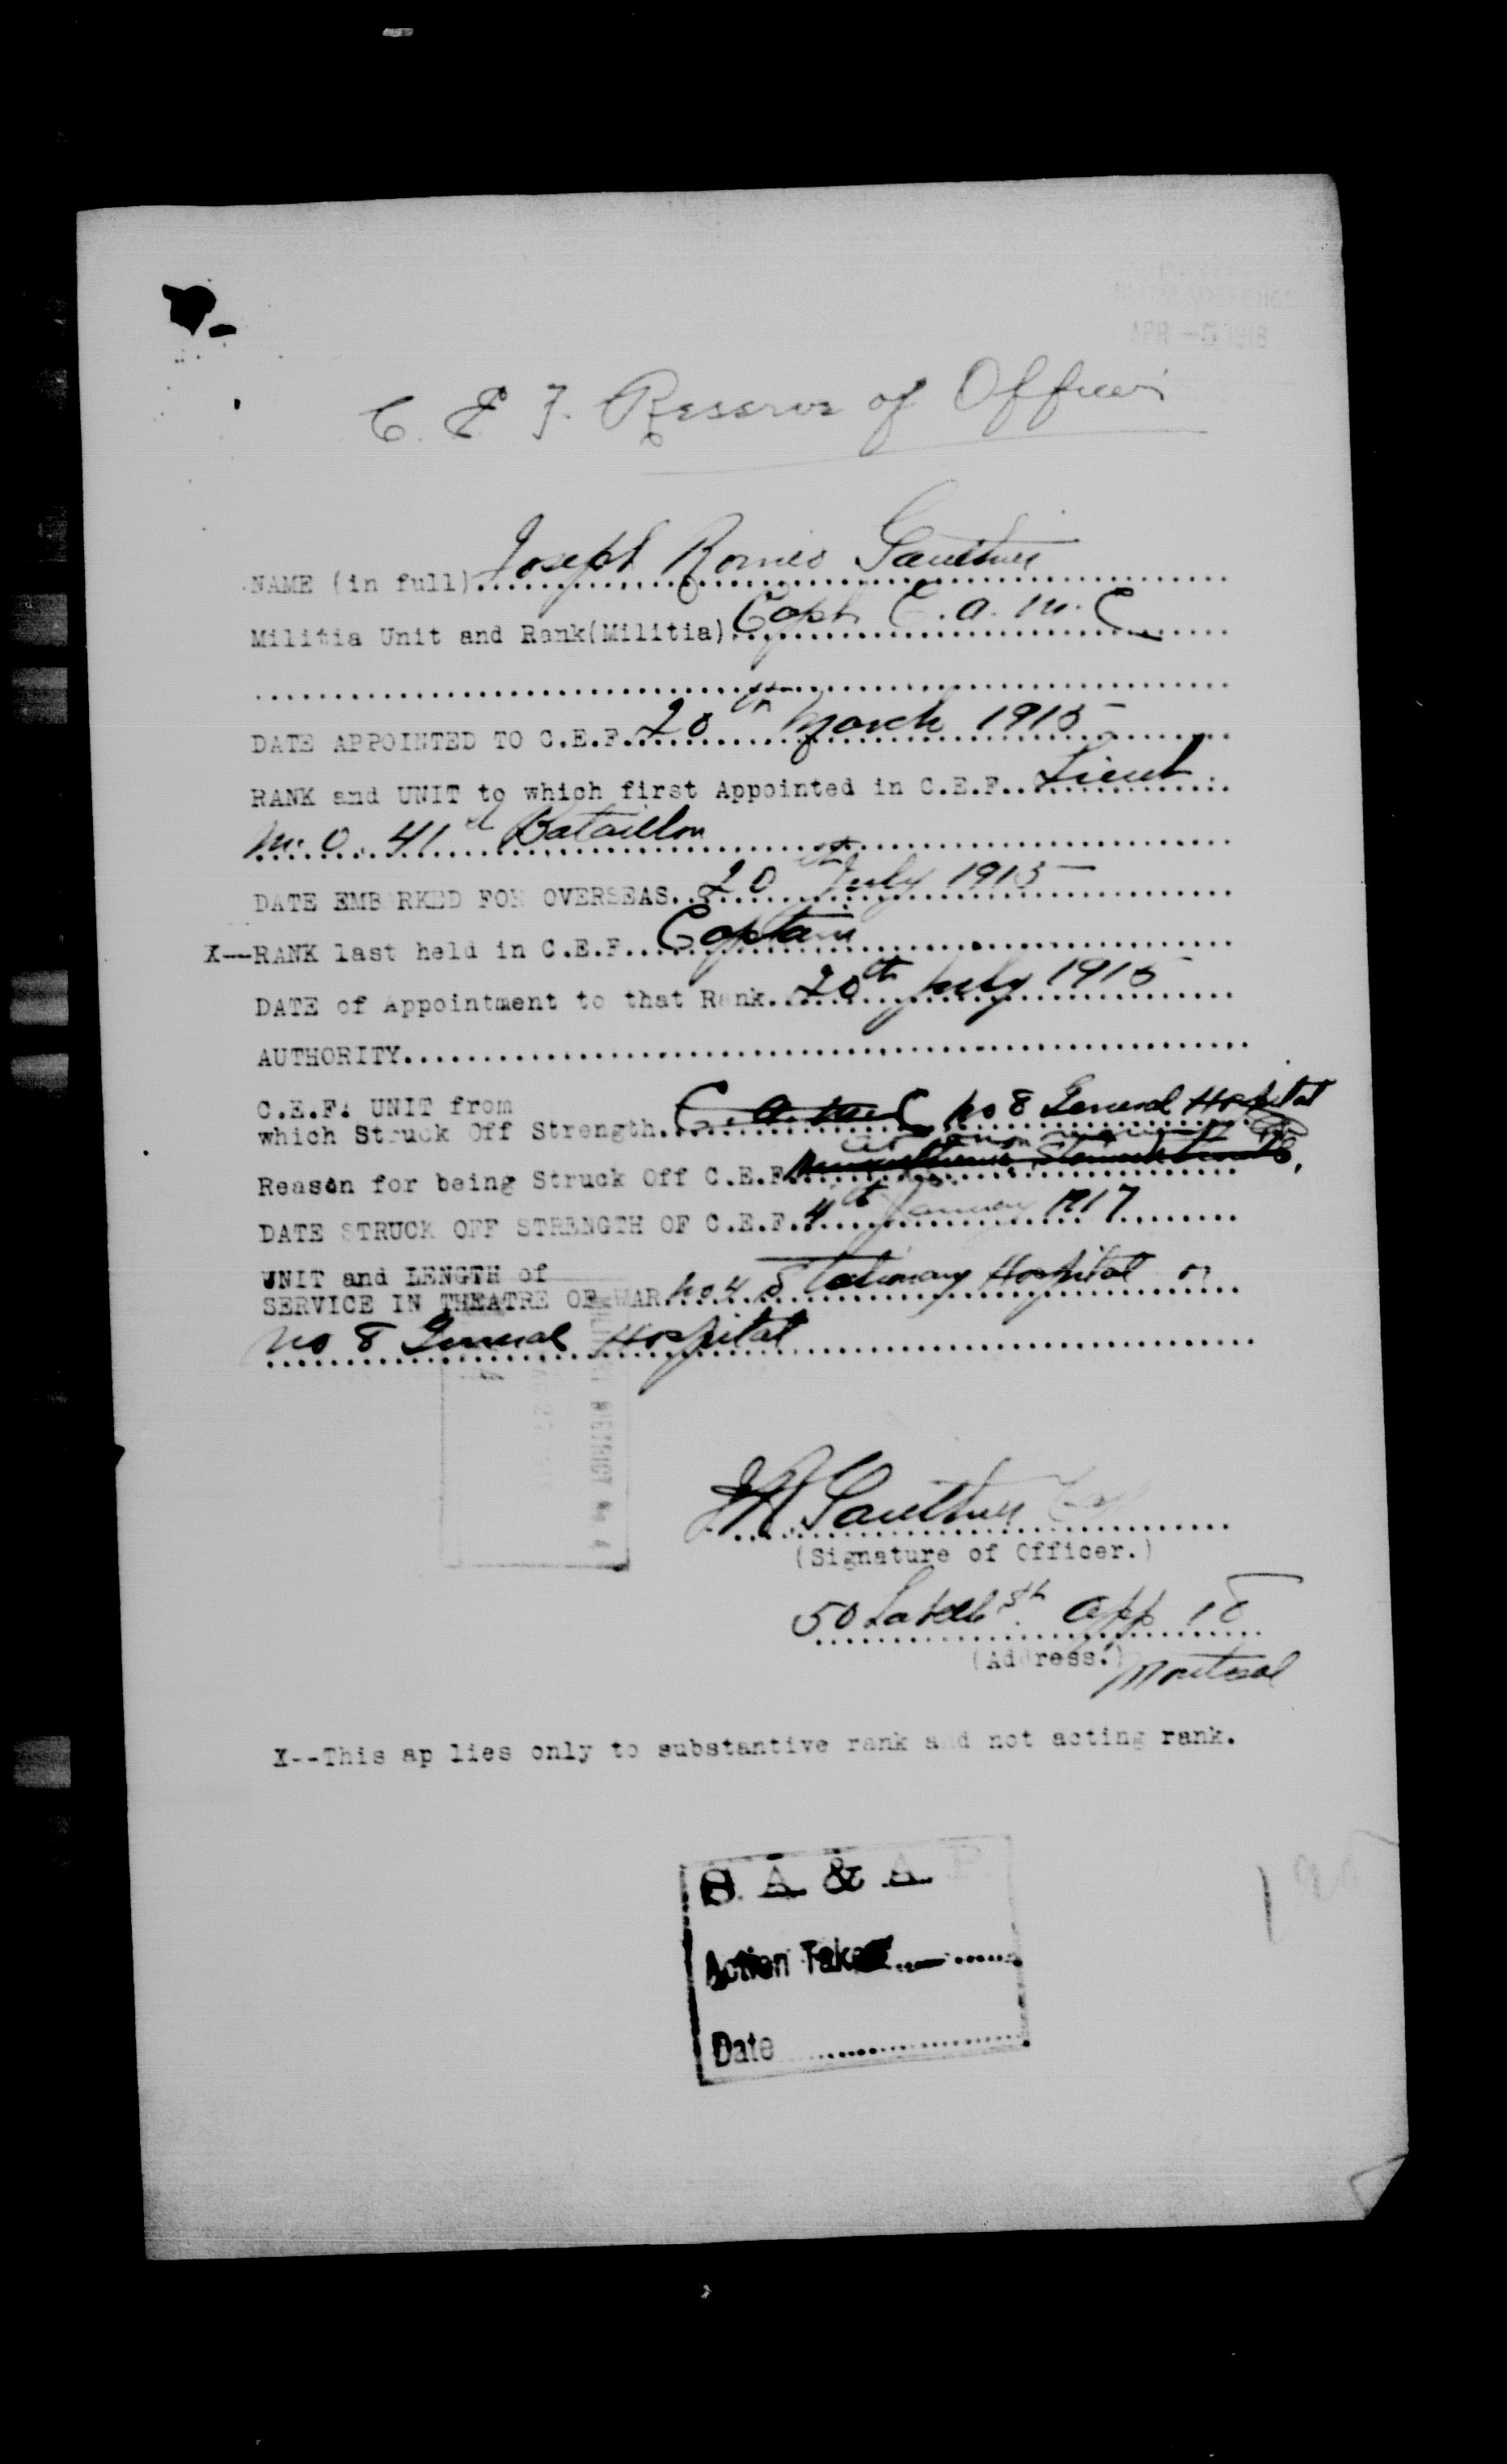 APR -5 1918
C. E. F. Reserve of Officers
NAME (in full) Joseph Romeo Gauthier
Militia Unit and Rank(Militia) Capt. C. A. M. C
DATE APPOINTED TO C.E.F. 20th March 1915
RANK and UNIT to which first Appointed in C.E.F. Lieut.
M. O. 41st Bataillon
DATE EMBARKED FOR OVERSEAS. 20th July 1915
X--RANK last held in C.E.F. Captain
DATE of Appointment to that Rank. 20th July 1915
AUTHORITY
C.E.F. UNIT from
which Struck Off Strength. C. A. M. C No 8 General Hospital
Reason for being Struck Off C.E.F.
DATE STRUCK OFF STRENGTH OF C.E.F. 4th January 1917
UNIT and LENGTH of
SERVICE IN THEATRE OF WAR. No 4 Stationary Hospital or
No 8 General Hospital
J R Gauthier Cap
(Signature of Officer.)
50 St. App 18
(Address.) Montreal
X--This ap lies only to substantive rank and not acting rank.
S. A. & A. P.
Action Taken
Date